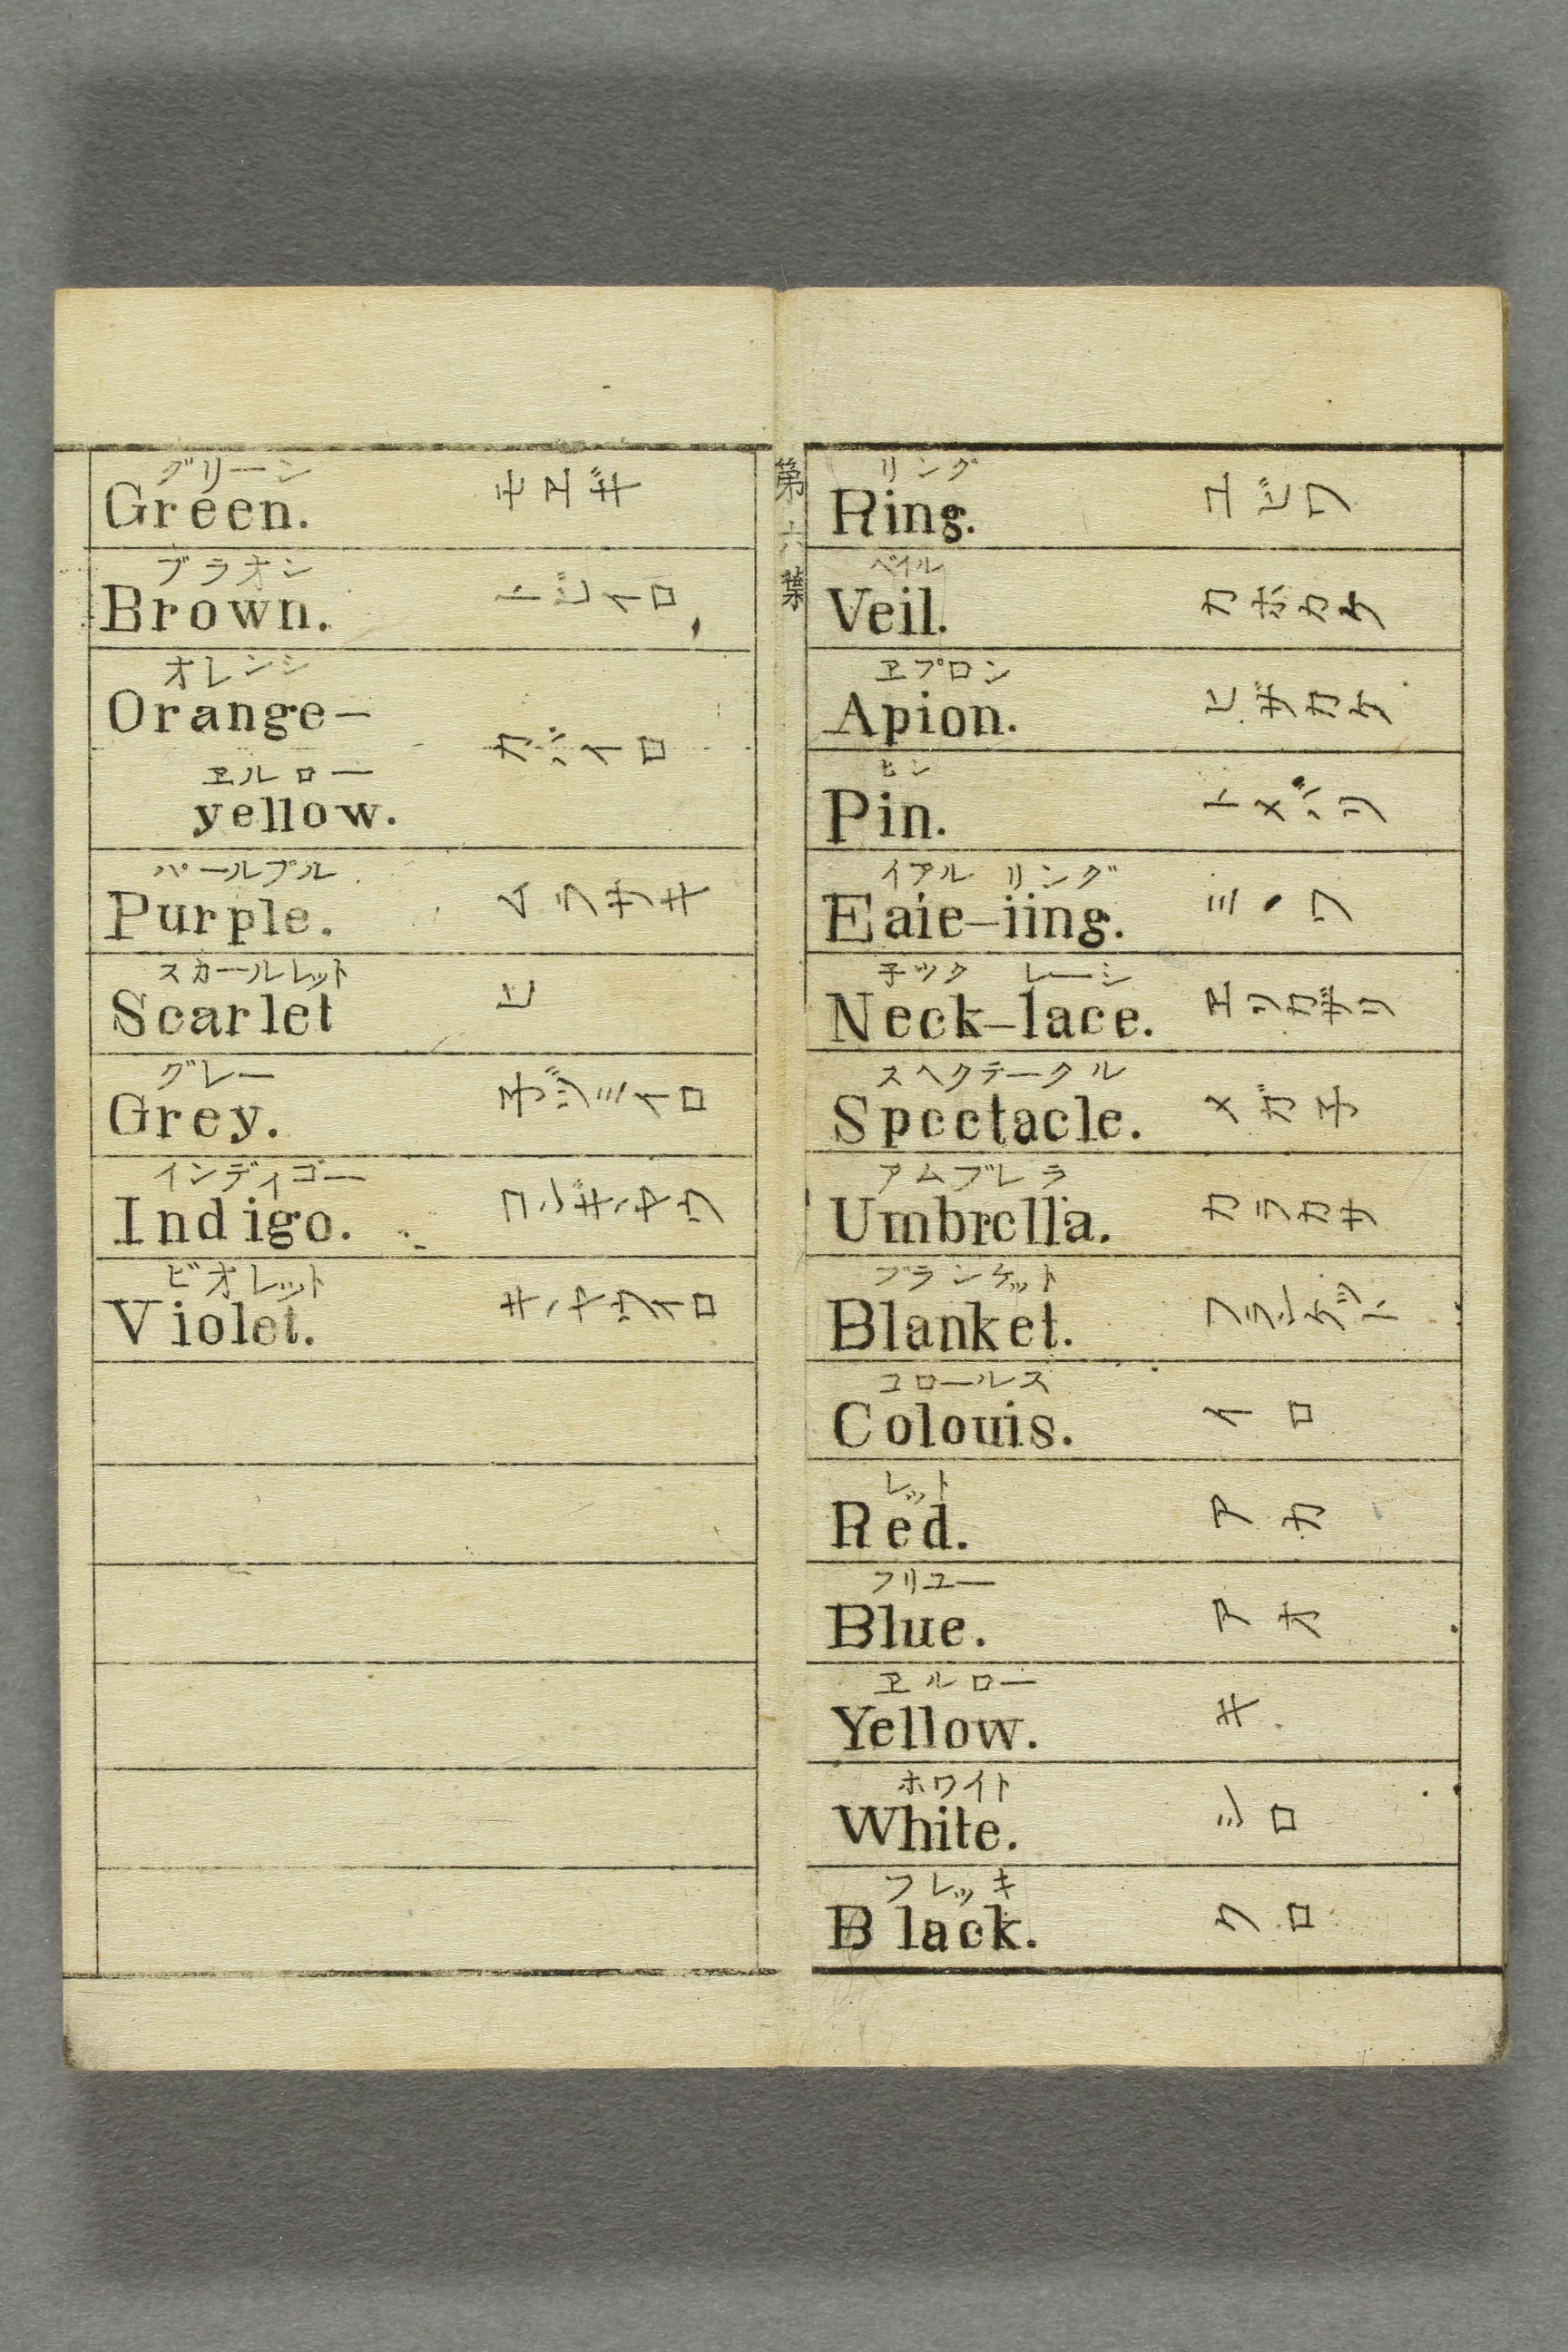 リング
Ring. ユビワ
ベイル
Veil. カホカケ
ヱプロン
Apion. ヒザカケ
ヒン
Pin. トメバリ
イアル リング
Eaie-iing. ミヽワ
子ツク レーシ
Neck-lace. エリカザリ
スヘクテークル
Spectacle. メガ子
アムブレラ
Umbrella. カラカサ
ブランケット
Blanket. フランケット
コロールス
Colouis. イロ
レット
Red. アカ
フリユー
Blue. アオ
ヱルロー
Yellow. キ
ホワイト
White. シロ
フレッキ
Black. クロ
第六葉
グリーン
Green. モエギ
ブラオン
Brown. トビイロ
オレンシ
Orange- カバイロ
ヱルロー
yellow.
パールプル
Purple. ムラサキ
スカールレット
Scarlet ヒ
グレー
Grey. 子ズミイロ
インディゴー
Indigo. コンギヽヤウ
ビオレット
Violet. キヽヤウイロ